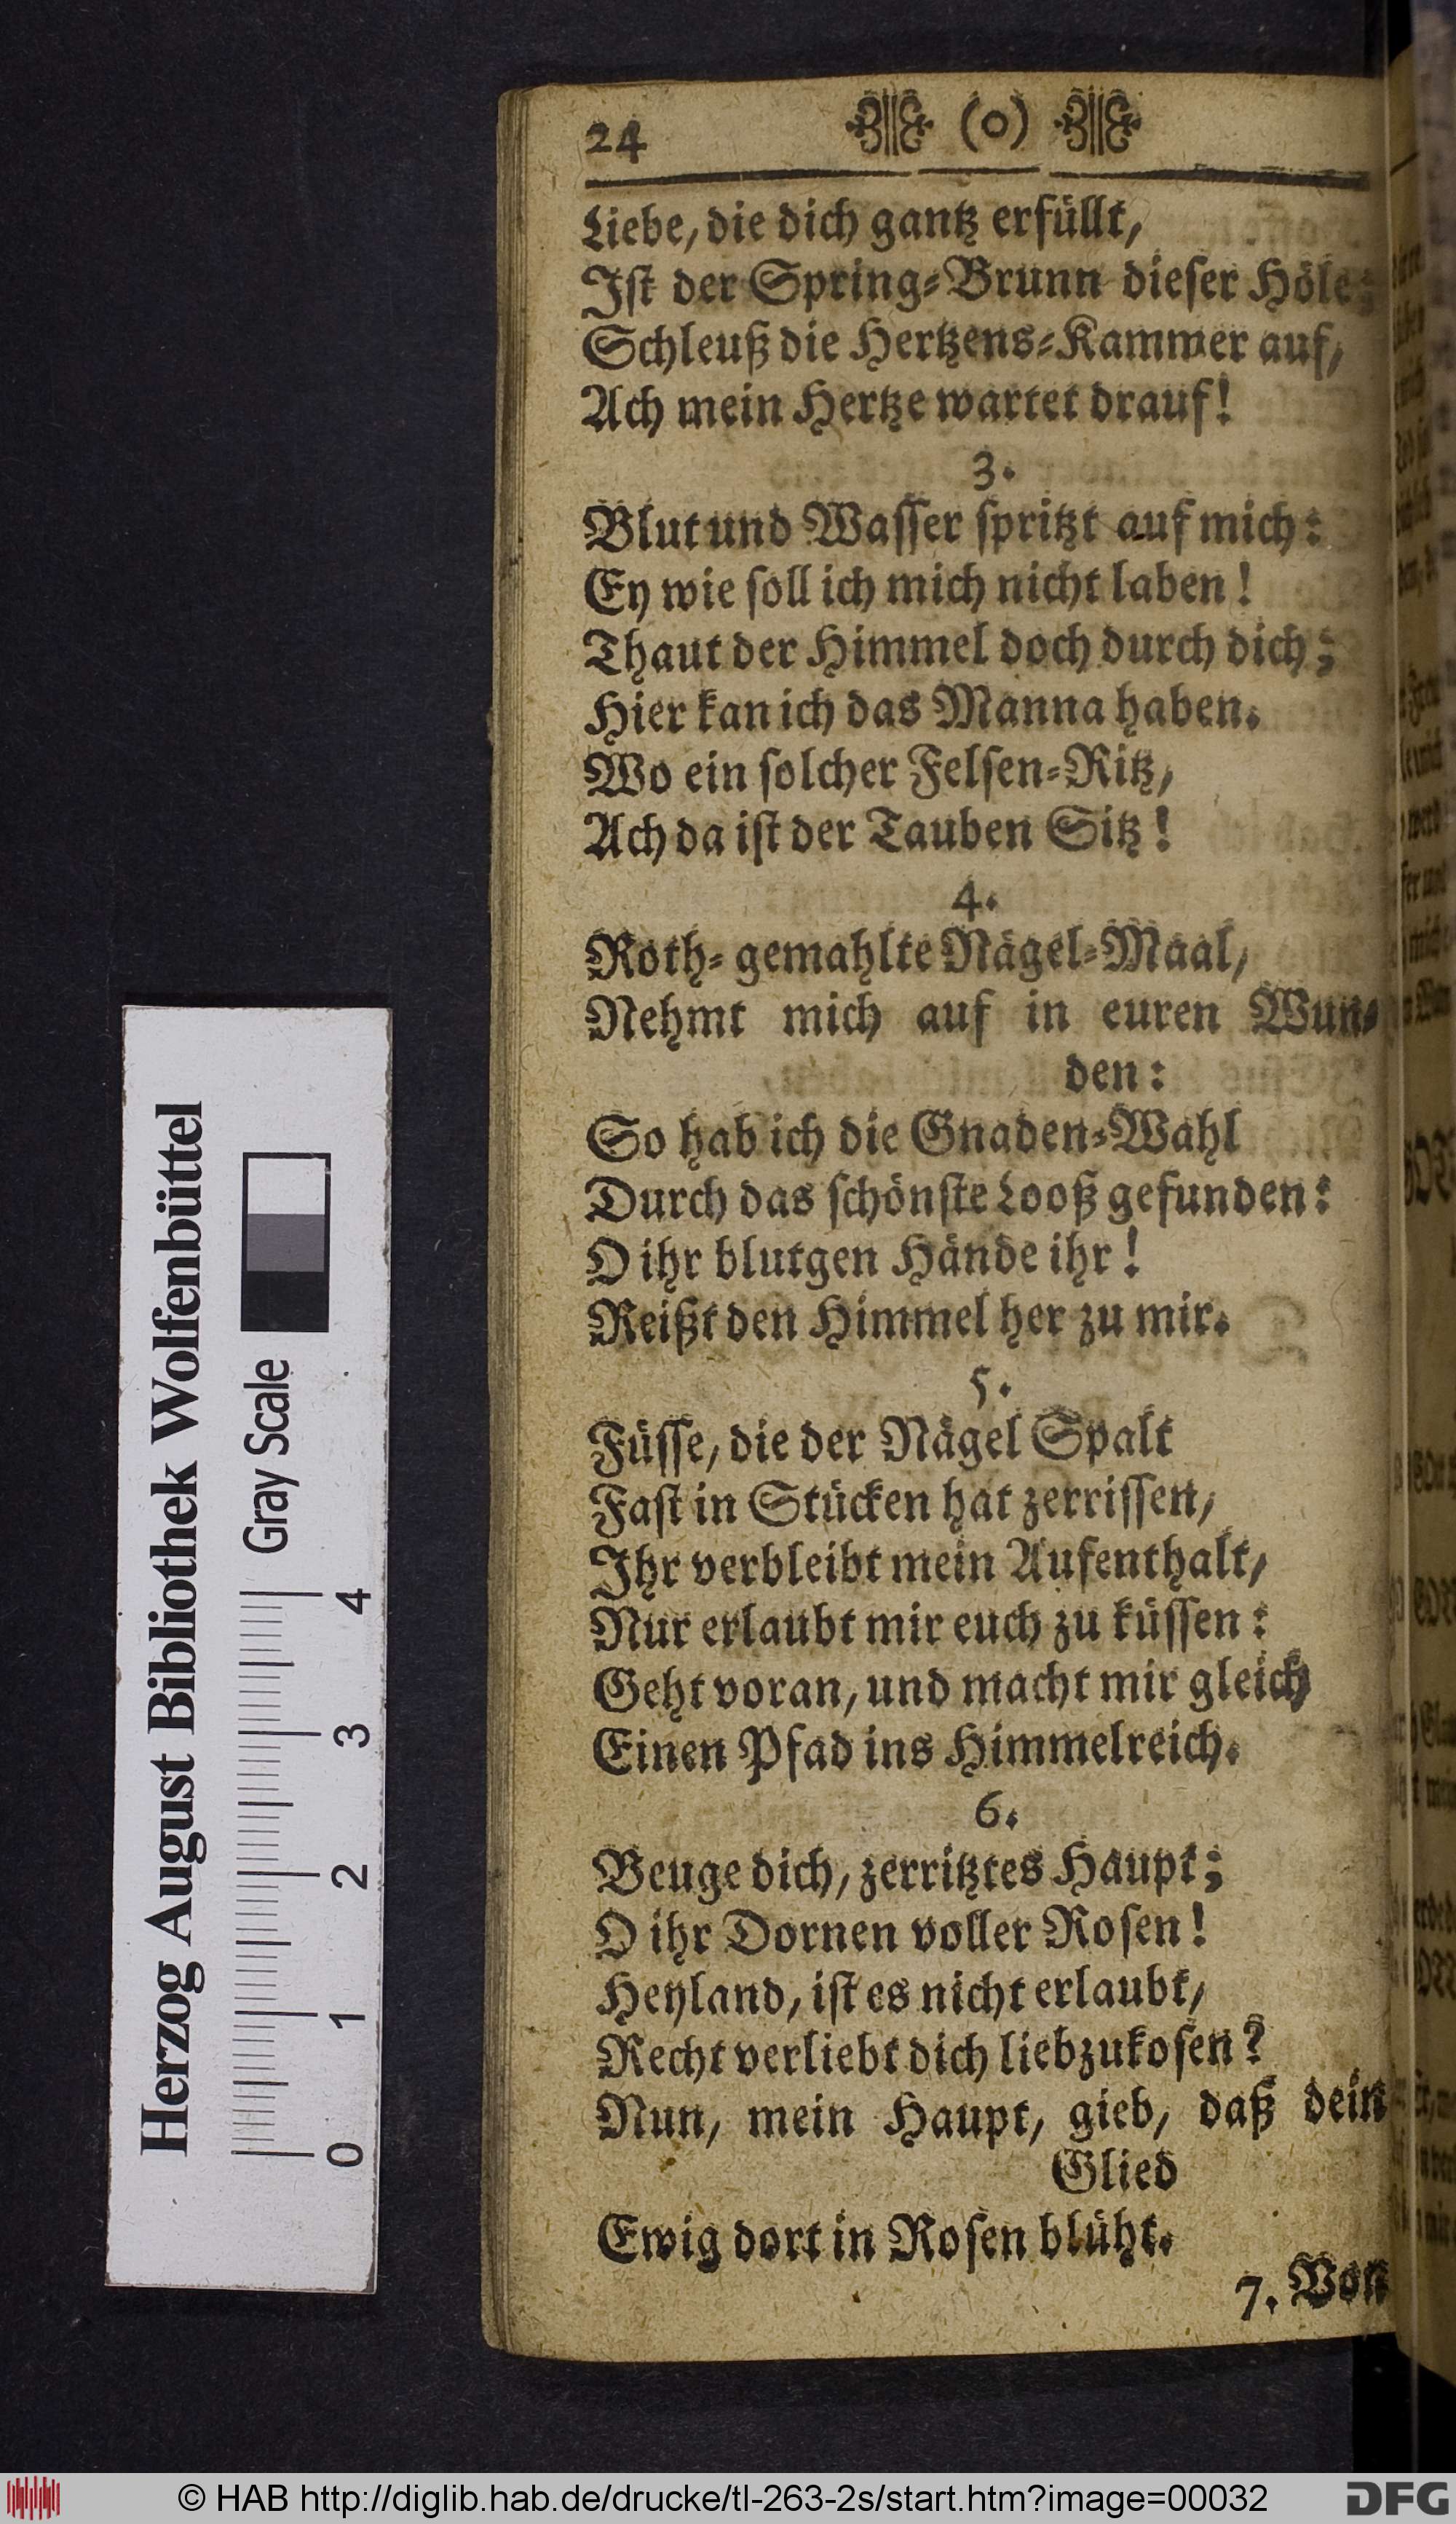 24 (o)
Liebe, die dich gantz erfüllt,
Iſt der Spring⸗Brunn dieſer Höle;
Schleuß die Hertzens⸗Kammer auf,
Ach mein Hertze wartet drauf!
3.
Blut und Waſſer ſpritzt auf mich:
Ey wie ſoll ich mich nicht laben!
Thaut der Himmel doch durch dich;
Hier kan ich das Manna haben.
Wo ein ſolcher Felſen⸗Ritz,
Ach da iſt der Tauben Sitz!
4.
Roth⸗ gemahlte Nägel⸗Maal,
Nehmt mich auf in euren Wun⸗
den:
So hab ich die Gnaden⸗Wahl
Durch das ſchönſte Looß gefunden:
O ihr blutgen Hände ihr!
Reißt den Himmel her zu mir.
5.
Füſſe, die der Nägel Spalt
Faſt in Stücken hat zerriſſen,
Ihr verbleibt mein Aufenthalt,
Nur erlaubt mir euch zu küſſen:
Geht voran, und macht mir gleich
Einen Pfad ins Himmelreich.
6.
Beuge dich, zerritztes Haupt;
O ihr Dornen voller Roſen!
Heyland, iſt es nicht erlaubt,
Recht verliebt dich liebzukoſen?
Nun, mein Haupt, gieb, daß dein
Glied
Ewig dort in Roſen blüht.
7. Von
Herzog August Bibliothek Wolfenbüttel
Gray Scale
0 1 2 3 4
© HAB http://diglib.hab.de/drucke/tl-263-2s/start.htm?image=00032
DFG